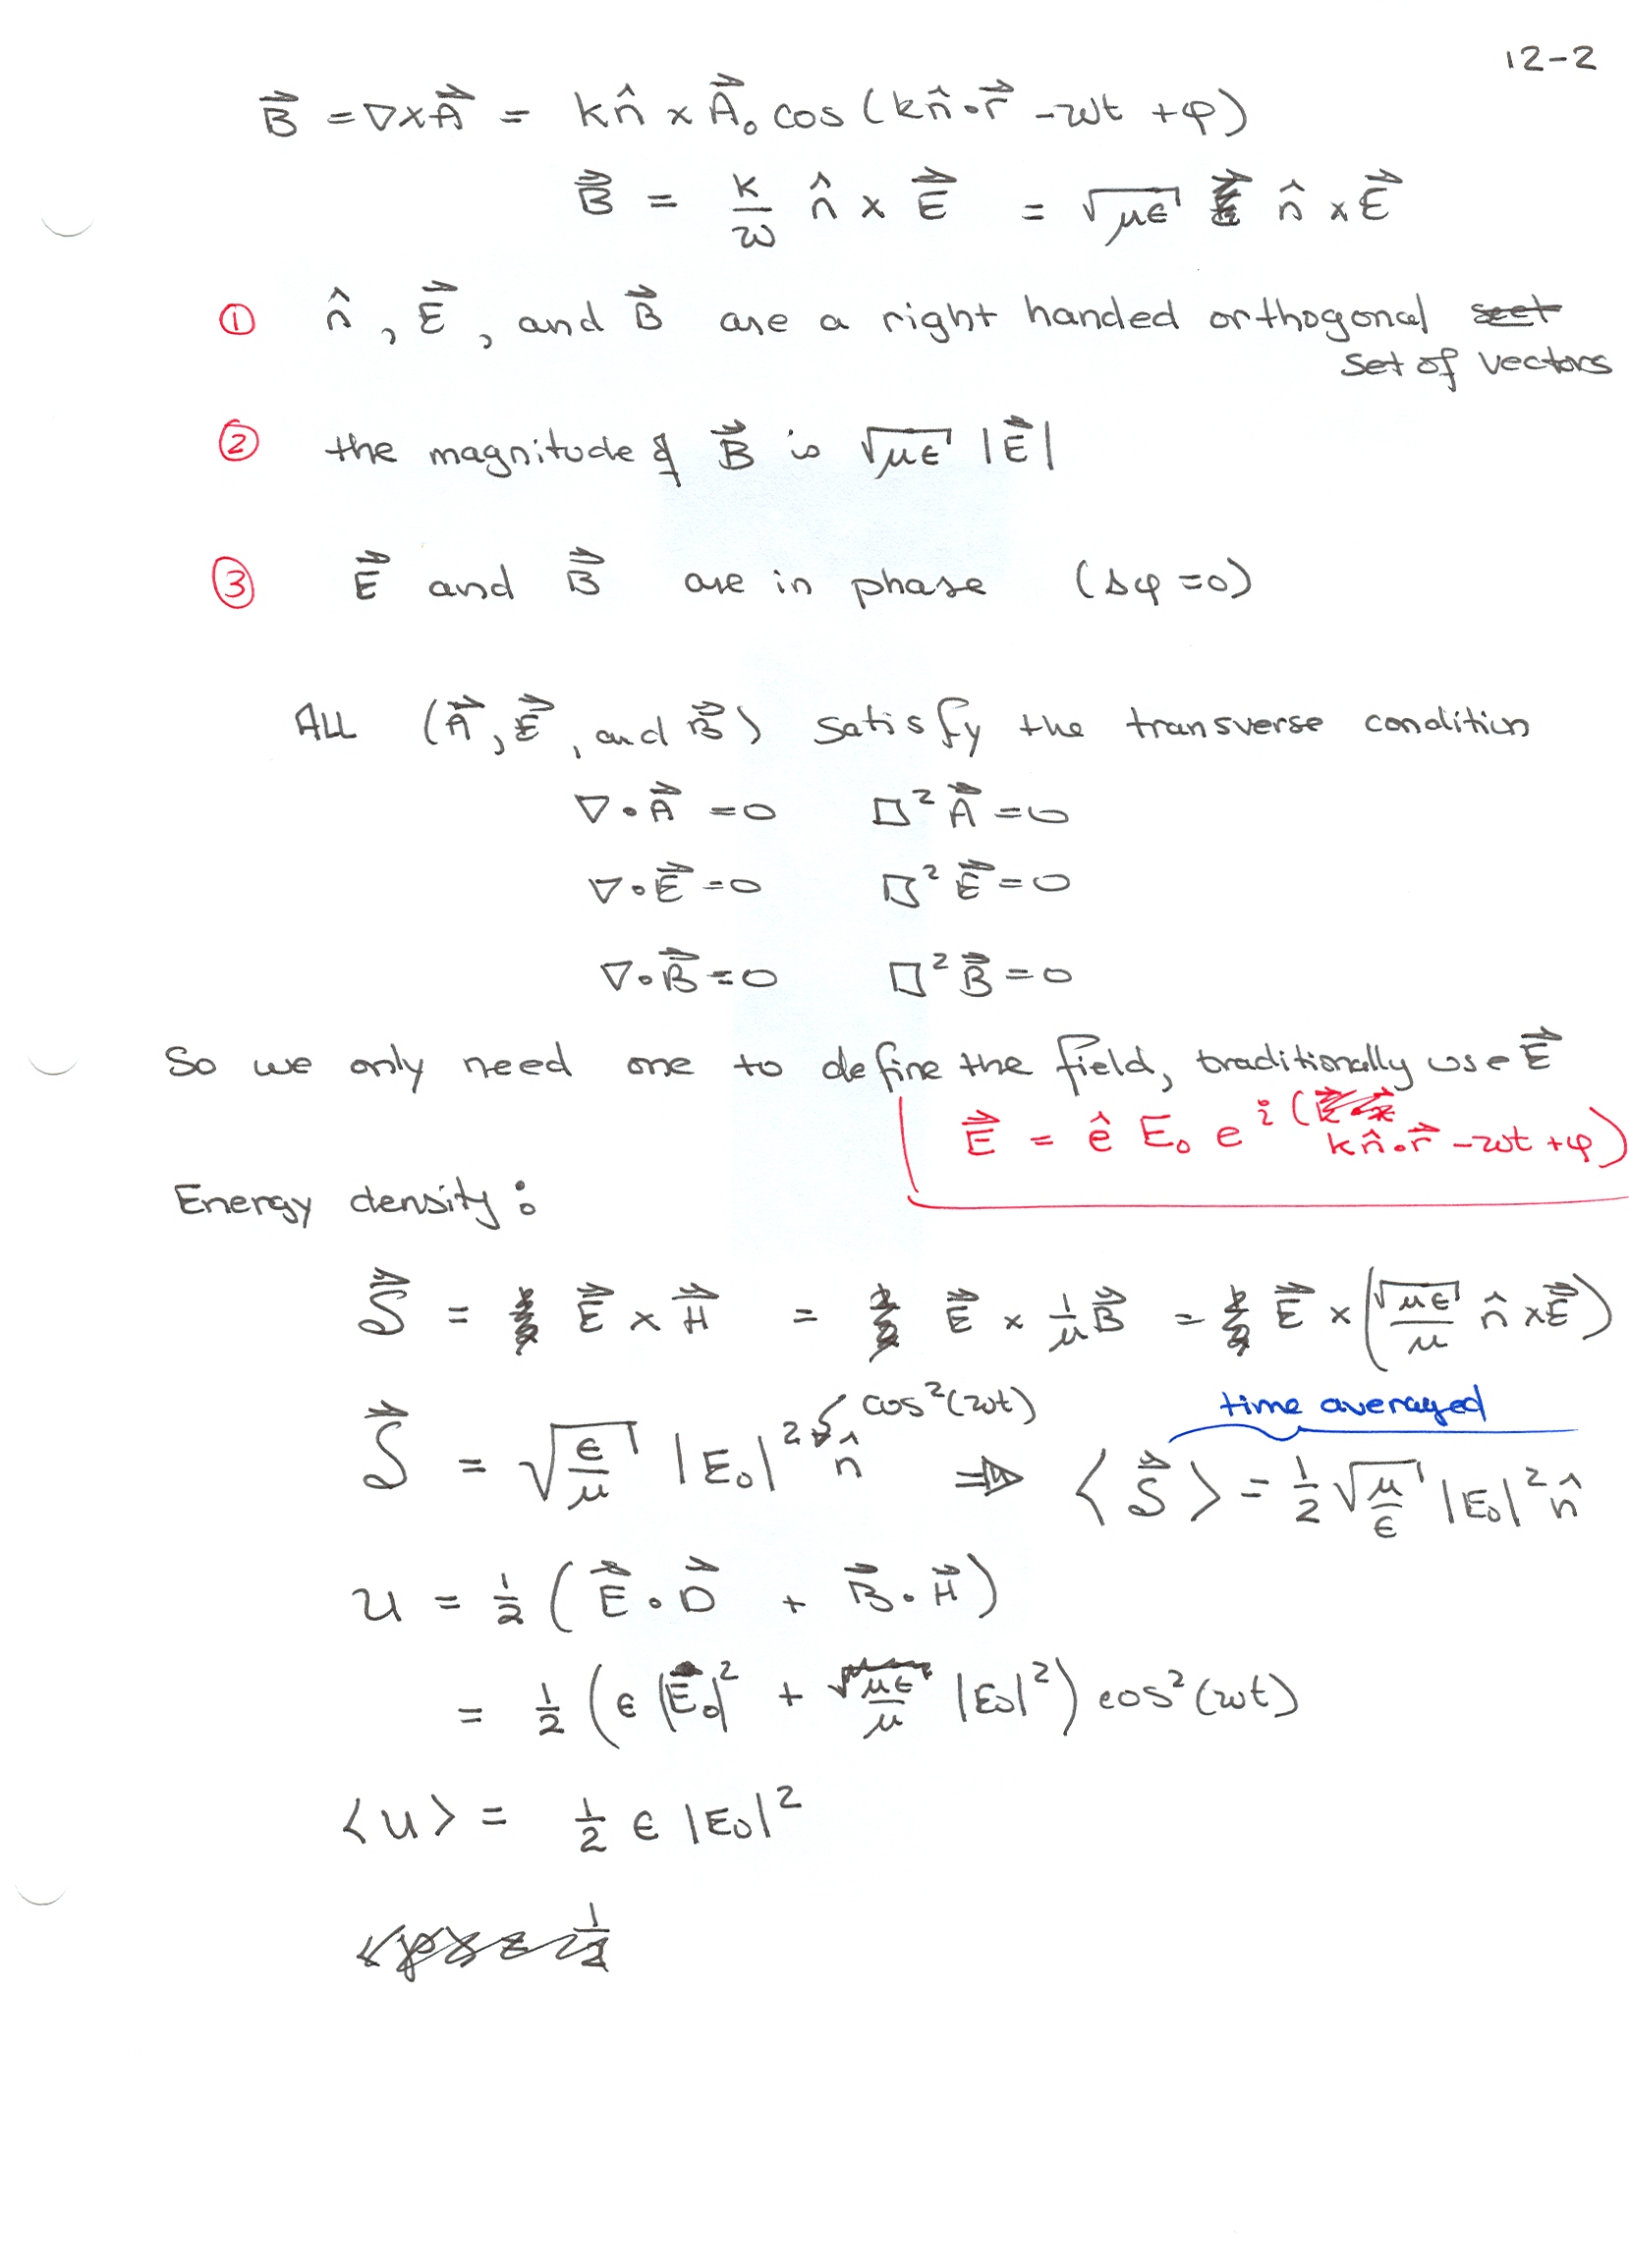 12-2
B⃗ = ∇×A⃗ = kn̂ × A⃗₀ cos(kn̂·r⃗ -ωt +φ)
B⃗ = k/ω n̂ × E⃗ = √με n̂ × E⃗
① n̂, E⃗, and B⃗ are a right handed orthogonal seet
set of vectors
② the magnitude of B⃗ is √με |E⃗|
③ E⃗ and B⃗ are in phase (Δφ=0)
ALL (A⃗, E⃗, and B⃗) satisfy the transverse condition
∇·A⃗ =0 □²A⃗ =0
∇·E⃗ =0 □²E⃗ =0
∇·B⃗ =0 □²B⃗ =0
So we only need one to define the field, traditionally use E⃗
E⃗ = ê E₀ e^i(kn̂·r⃗ -ωt +φ)
Energy density:
S⃗ = E⃗ × H⃗ = E⃗ × 1/μ B⃗ = E⃗ × (√με/μ n̂ × E⃗)
cos²(ωt) time averaged
S⃗ = √(ε/μ) |E₀|² n̂ ⇒ ⟨S⃗⟩ = 1/2 √(μ/ε) |E₀|² n̂
u = 1/2 (E⃗·D⃗ + B⃗·H⃗)
= 1/2 (ε |E₀|² + με/μ |E₀|²) cos²(ωt)
⟨u⟩ = 1/2 ε |E₀|²